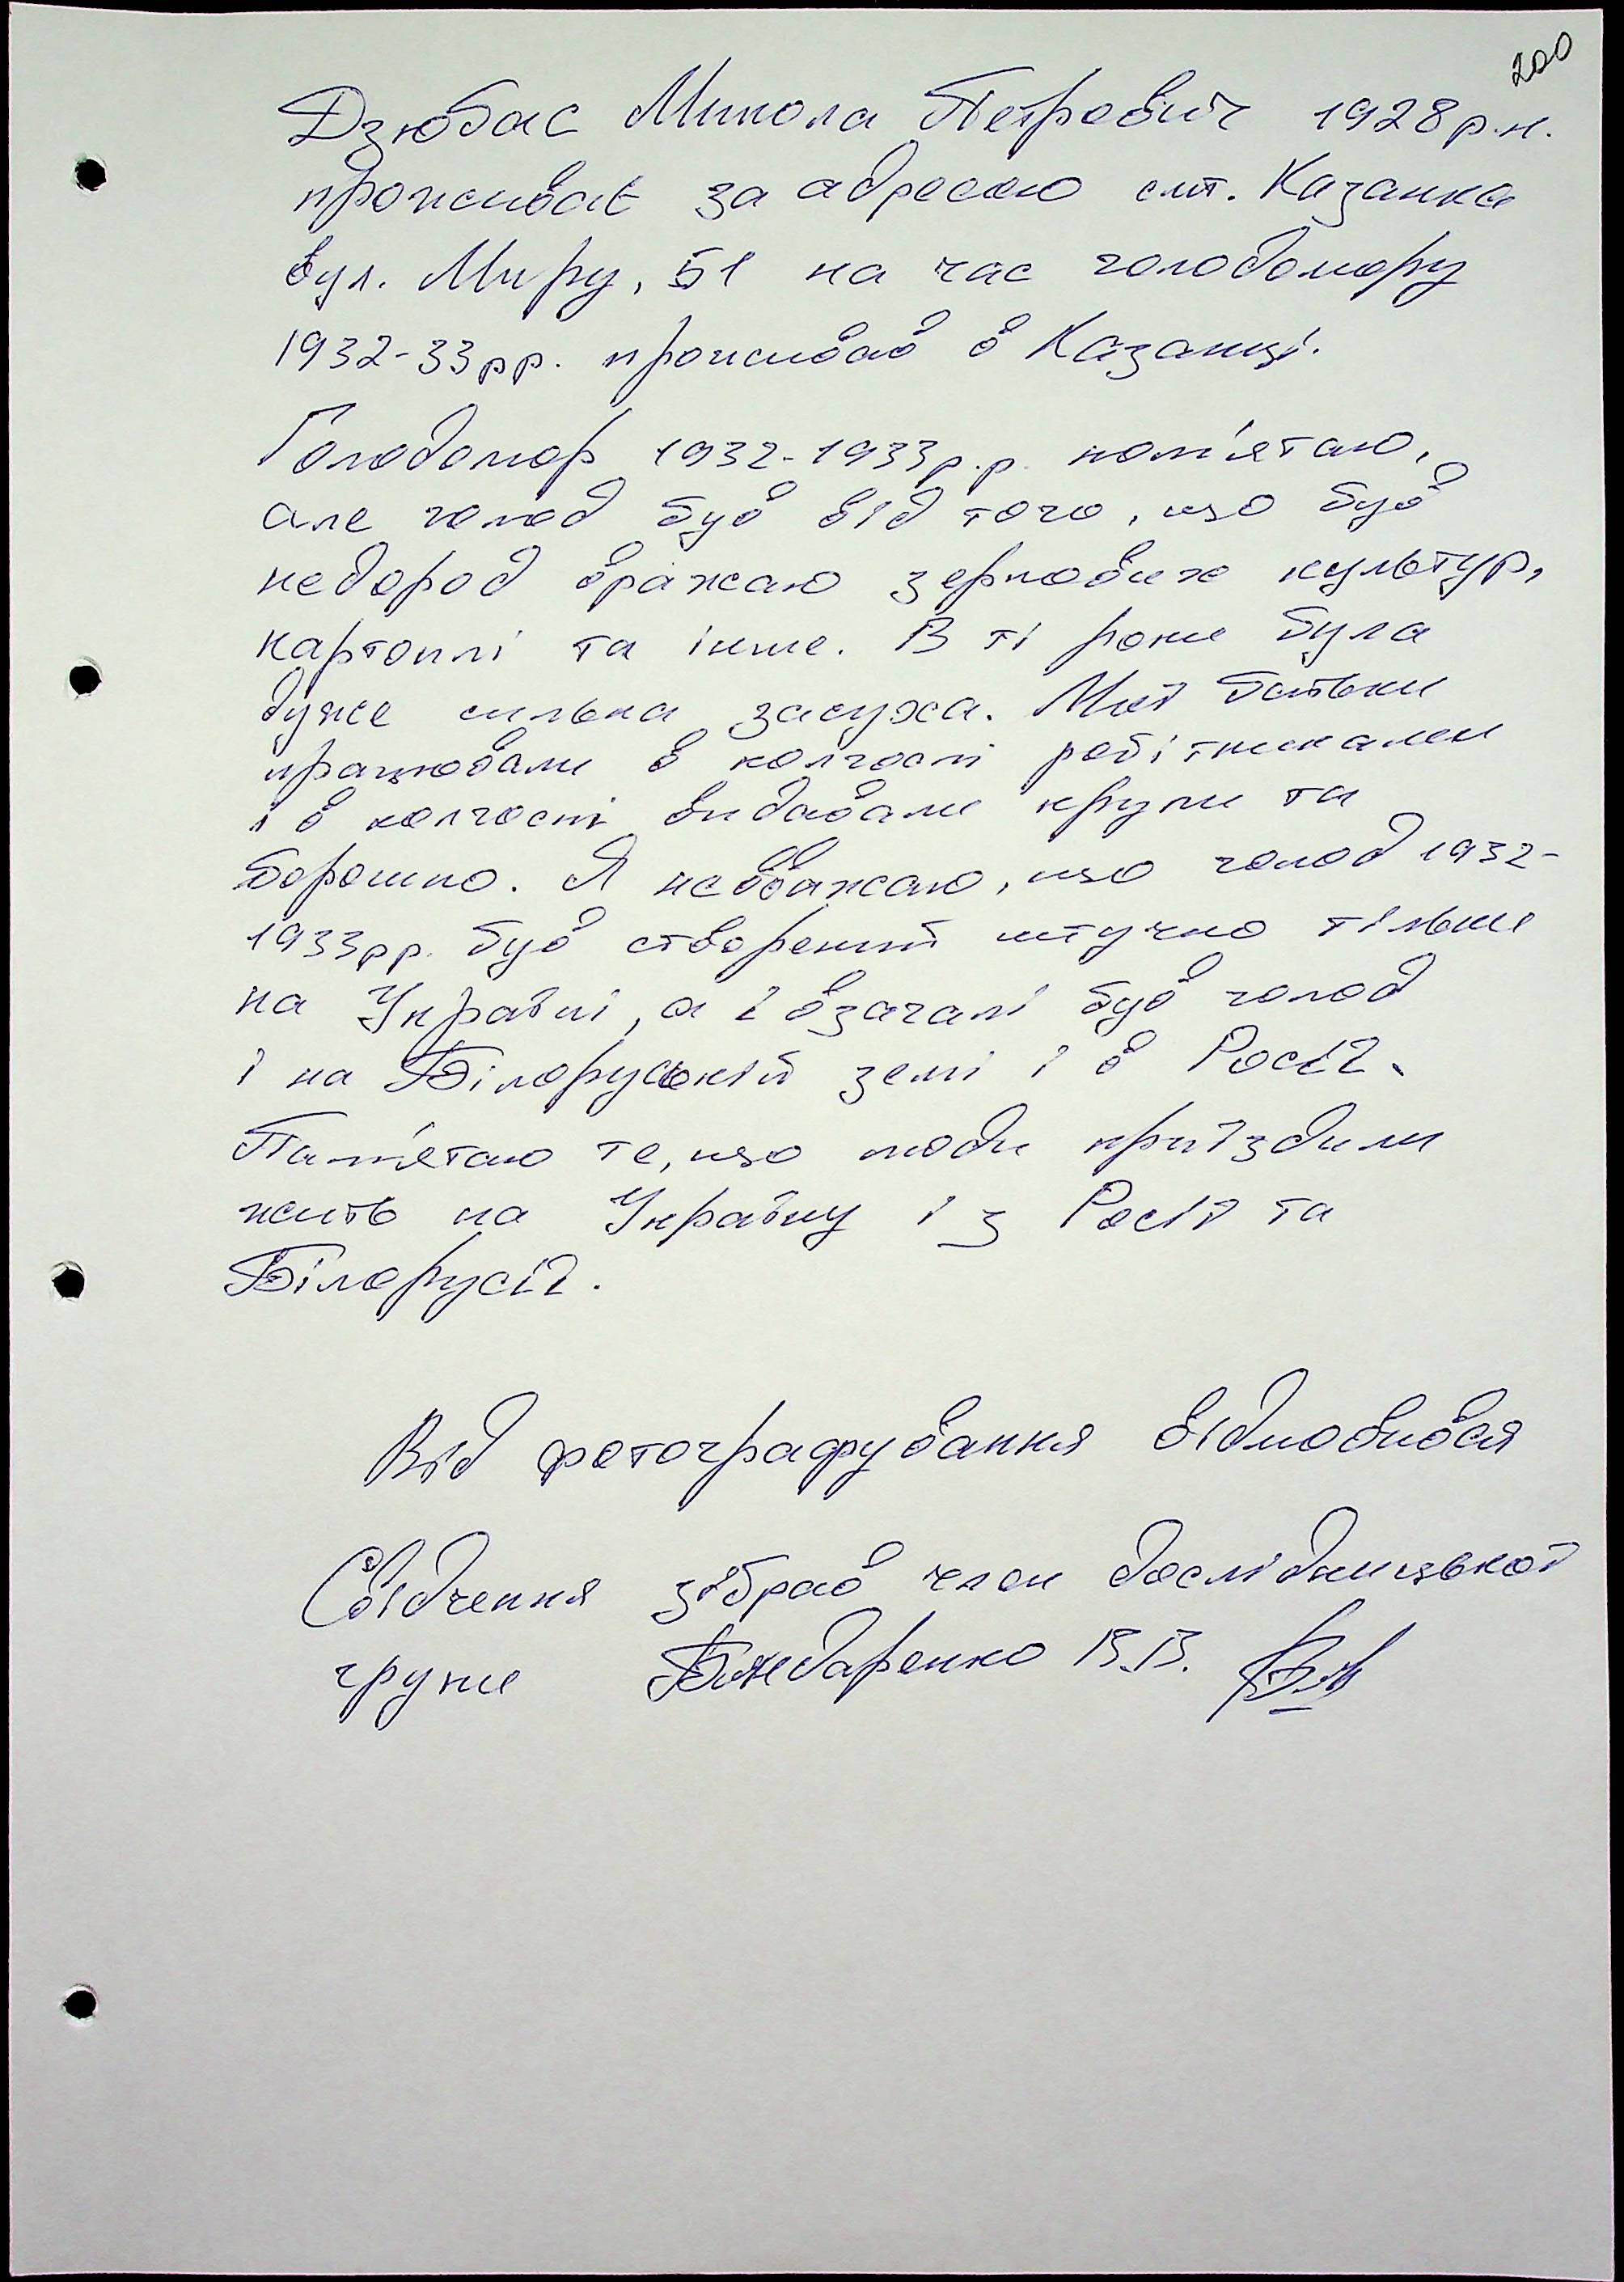 200
Дзюбас Микола Петрович 1928 р.н.
проживає за адресою смт. Казанка
вул. Миру, 51 на час голодомору
1932-33 рр. проживав в Казанці.
Голодомор 1932-1933 р.р. пом'ятаю,
але голод був від того, що був
недород вражаю зернових культур,
картоплі та інше. В ті роки була
дуже сильна засуха. Мої батьки
працювали в колгоспі робітниками
і в колгоспі видавали крупи та
борошно. Я не вважаю, що голод 1932-
1933 рр. був створений штучно тільки
на Україні, а і взагалі був голод
і на Білоруській землі і в Росії.
Пам'ятаю те, що люди приїздили
жить на Україну і з Росії та
Білорусії.
Від фотографування відмовився
Свідчення зібрав член дослідницької
групи Бондаренко В.В.